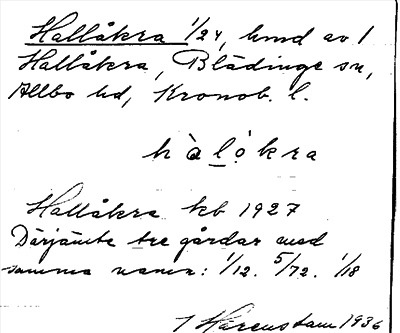 Hallåkra 1/24, hmd av 1
Hallåkra, Blädinge sn,
Allbo hd, Kronob. l.
hàlọ́kra
Hallåkra kb 1927
Därjämte tre gårdar med
samma namn: 1/12. 5/72. 1/18
1936